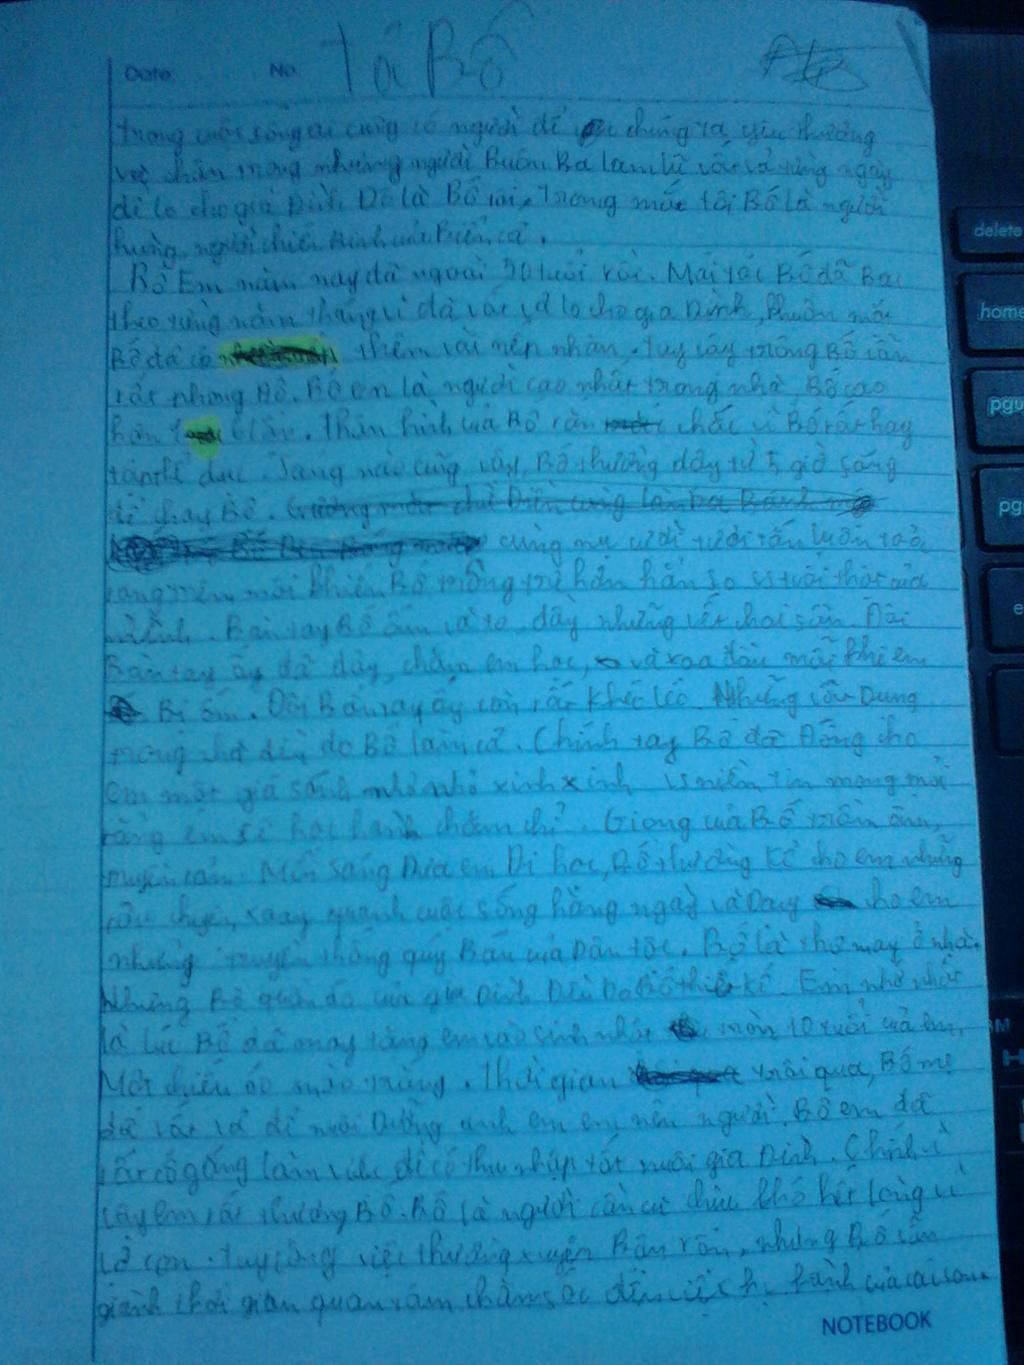 Date: No. Tả Bố
trong cuộc sống ai cũng có người để chúng ta yêu thương
và trân trọng những người Buôn Ba lam lũ vất vả từng ngày
để lo cho gia Đình Đó là Bố tôi. Trong mắt tôi Bố là người
hùng, người chiến Binh của Biển cả.
Bố Em năm nay đã ngoài 50 tuổi rồi. Mái tóc Bố đã Bạc
theo từng năm tháng vì đã vất vả lo cho gia Đình, khuôn mặt
Bố đã có thêm vài nếp nhăn. Tuy vậy trông Bố vẫn
rất phong Độ. Bố em là người cao nhất trong nhà, Bố cao
hơn. Thân hình của Bố săn chắc vì Bố rất hay
tập thể dục. Sáng nào cũng vậy, Bố thường dậy từ 5 giờ sáng
để chạy Bộ.
cùng nụ cười tươi tắn luôn toả
rạng trên môi khiến Bố trông trẻ hơn hẳn so vs tuổi thật của
mình. Bàn tay Bố ấm và to, đầy những vết chai sần. Đôi
Bàn tay ấy đã dạy, chăm em học, và xoa đầu mỗi khi em
Bị ốm. Đôi Bàn tay ấy còn rất khéo léo. Những Dụng
trong nhà đều do Bố làm cả. Chính tay Bố đã Đóng cho
em một giá sách nho nhỏ xinh xinh vs niềm tin mong mỏi
rằng em sẽ học hành chăm chỉ. Giọng của Bố trầm ấm,
truyền cảm. Mỗi sáng Đưa em Đi học, Bố thường kể cho em những
câu chuyện xoay quanh cuộc sống hằng ngày và Dạy cho em
những truyền thống quý Báu của Dân tộc. Bố là thợ may ở nhà.
Những Bộ quần áo của gia Đình Đều Do Bố thiết kế. Em nhớ nhất
là lúc Bố đã may tặng em vào sinh nhật tròn 10 tuổi của em,
Một chiếc áo màu trắng. Thời gian trôi qua, Bố mẹ
đã vất vả để nuôi Dưỡng anh em em nên người. Bố em đã
rất cố gắng làm việc để có thu nhập tốt nuôi gia Đình. Chính vì
vậy em rất thương Bố. Bố là người cần cù chịu khó hết lòng vì
vợ con. Tuy công việc thường xuyên Bận rộn, nhưng Bố vẫn
giành thời gian quan tâm chăm sóc đến việc học hành của
NOTEBOOK
delete
home
pgu
pg
e